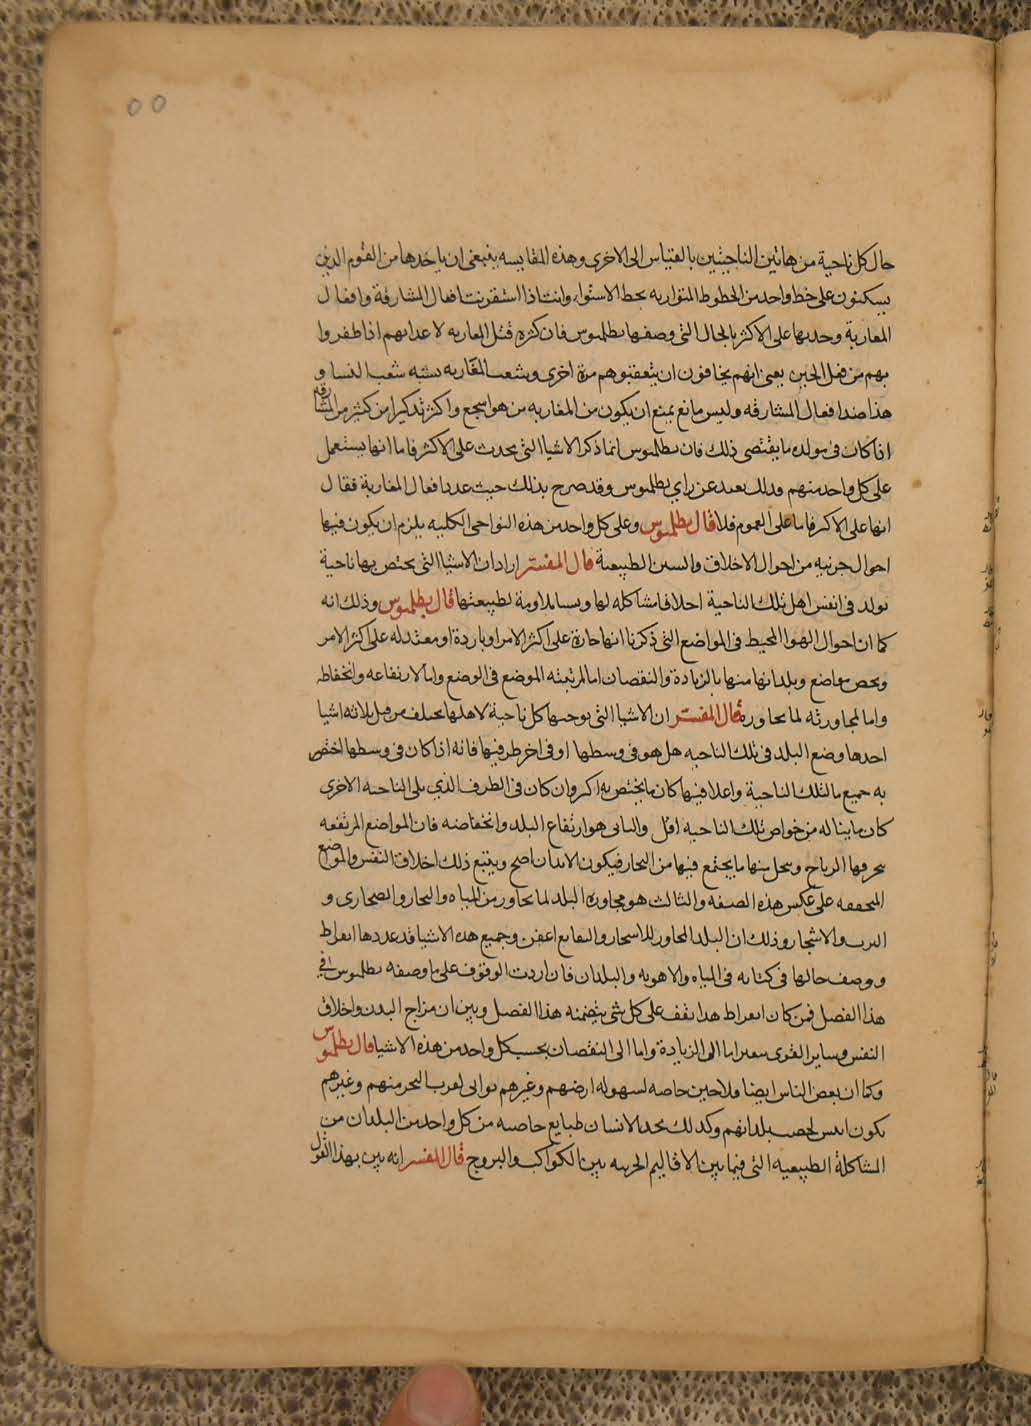 ٥٥
حال كل ناحية من هاتين الناحيتين بالقياس الى الاخرى وهذه المقايسه ينبغى ان ياخدها من القوم الذين
يسكنون على خط واحد من الخطوط المتوازيه بخط الاستواء وانت اذا استقريت افعال المشارقة وافعال
المغاربة وجدتها على الاكثر بالحال التى وصفها بطلميوس فان كثرة قتل المغاربه لاعدايهم اذا ظفروا
بهم من فبل الجبن يعنى انهم يخافون ان يتعقبوهم مرة اخرى وشعب المغاربه يشبه شعب النسا و
هذا ضد افعال المشارقه وليس مانع يمنع ان يكون من المغاربه من هو اسجع واكثر تذكيرا من كثير من المشارقه
اذا كان فى مولده ما يقتضى ذلك فان بطلميوس انما ذكر الاشيا التى يحدث على الاكثر فاما انها يستعمل
على كل واحد منهم فذلك بعيد عن راي بطلميوس وقد صرح بذلك حيث عدد افعال المغاربة فقال
انها على الاكثر فاما على العموم فلا قال بطلميوس وعلى كل واحد من هذه النواحى الكليه يلزم ان يكون فيها
احوال جزئيه من احوال الاخلاق والسنن الطبيعية قال المفسر اراد ان الاشيا التى يختص بها ناحية
يولد فى انفس اهل تلك الناحية اخلاقا مشاكله لها وسننا ملاومة لطبيعتها قال بطلميوس وذلك انه
كما ان احوال الهوا المحيط فى المواضع التى ذكرنا انها حارة على اكثر الامر او باردة او معتدله على اكثر الامر
ويخص مواضع وبلدانها منها بالزيادة والنقصان اما لمرتبته الموضع فى الوضع واما لارتفاعه وانخفاطه
واما لمجاورته لما يجاوره قال المفسر ان الاشيا التى يوجبها كل ناحية لاهلها يختلف من قبل ثلاثه اشيا
احدها وضع البلد فى تلك الناحيه هل هو فى وسطها او فى اخر طرفيها فانه اذا كان فى وسطها اختص
به جميع ما لتلك الناحية واعلا فيها كان ما يختص به اكثر وان كان فى الطرف الذي يلى الناحيه الاخرى
كان ما يناله من خواص تلك الناحيه اقل والثانى هو ارتفاع البلد وانخفاضه فان المواضع المرتفعه
يخرقها الرياح ويحلل منها ما يجتمع فيها من البخار فيكون الابدان اصح ويتبع ذلك اخلاق النفس والمواضع
المنخفضه على عكس هذه الصفه والثالث هو مجاوره البلد لما يجاور من المياه والبحار والصحارى و
الترب والاشجار وذلك ان البلد المجاور للاسجار والنقايع اعفن وجميع هذه الاشيا قد عددها ابقراط
ووصف حالها فى كتابه فى المياه والاهويه والبلدان فان اردت الوقوف على ما وصفه بطلميوس فى
هذا الفصل فمن كتاب ابقراط هذا يقف على كل شى يتضمنه هذا الفصل وبين ان مزاج البدن واخلاق
النفس وساير القوى يتغير اما الى الزيادة واما الى النقصان بحسب كل واحد من هذه الاشيا قال بطلميوس
وكما ان بعض الناس ايضا فلاحين خاصه لسهوله ارضهم وغيرهم نواتى لقرب البحر منهم وغيرهم
يكون انس لخصب بلدانهم وكذلك يجد الانسان طبايع خاصيه من كل واحد من البلدان من
المشاكلة الطبيعيه التى فيما بين الاقاليم الجزئيه بين الكواكب والبروج قال المفسر انه بين بهذا القول